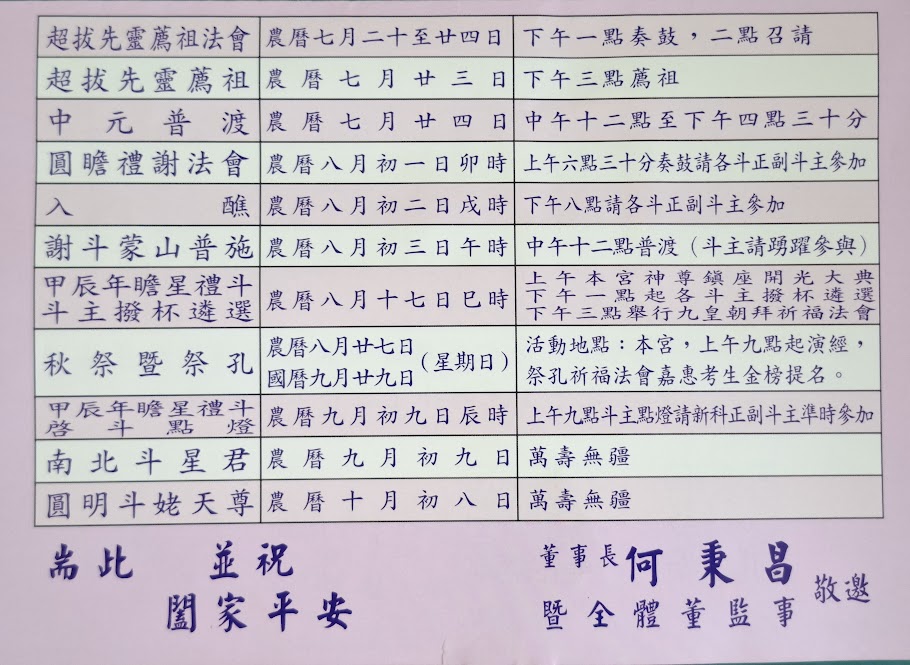 超拔先靈薦祖法會 農曆七月二十至廿四日 下午一點奏鼓，二點召請
超拔先靈薦祖 農曆七月廿三日 下午三點薦祖
中元普渡 農曆七月廿四日 中午十二點至下午四點三十分
圓瞻禮謝法會 農曆八月初一日卯時 上午六點三十分奏鼓請各斗正副斗主參加
入醮 農曆八月初二日戌時 下午八點請各斗正副斗主參加
謝斗蒙山普施 農曆八月初三日午時 中午十二點普渡（斗主請踴躍參與）
甲辰年瞻星禮斗
斗主撥杯遴選
農曆八月十七日巳時
上午本宮神尊鎮座開光大典
下午一點起各斗主撥杯遴選
下午三點舉行九皇朝拜祈福法會
秋祭暨祭孔
農曆八月廿七日
國曆九月廿九日
(星期日)
活動地點：本宮，上午九點起演經，
祭孔祈福法會嘉惠考生金榜提名。
甲辰年瞻星禮斗
啓斗點燈
農曆九月初九日辰時
上午九點斗主點燈請新科正副斗主準時參加
南北斗星君 農曆九月初九日 萬壽無疆
圓明斗姥天尊 農曆十月初八日 萬壽無疆
耑此 並祝
闔家平安
董事長何秉昌
暨全體董監事
敬邀